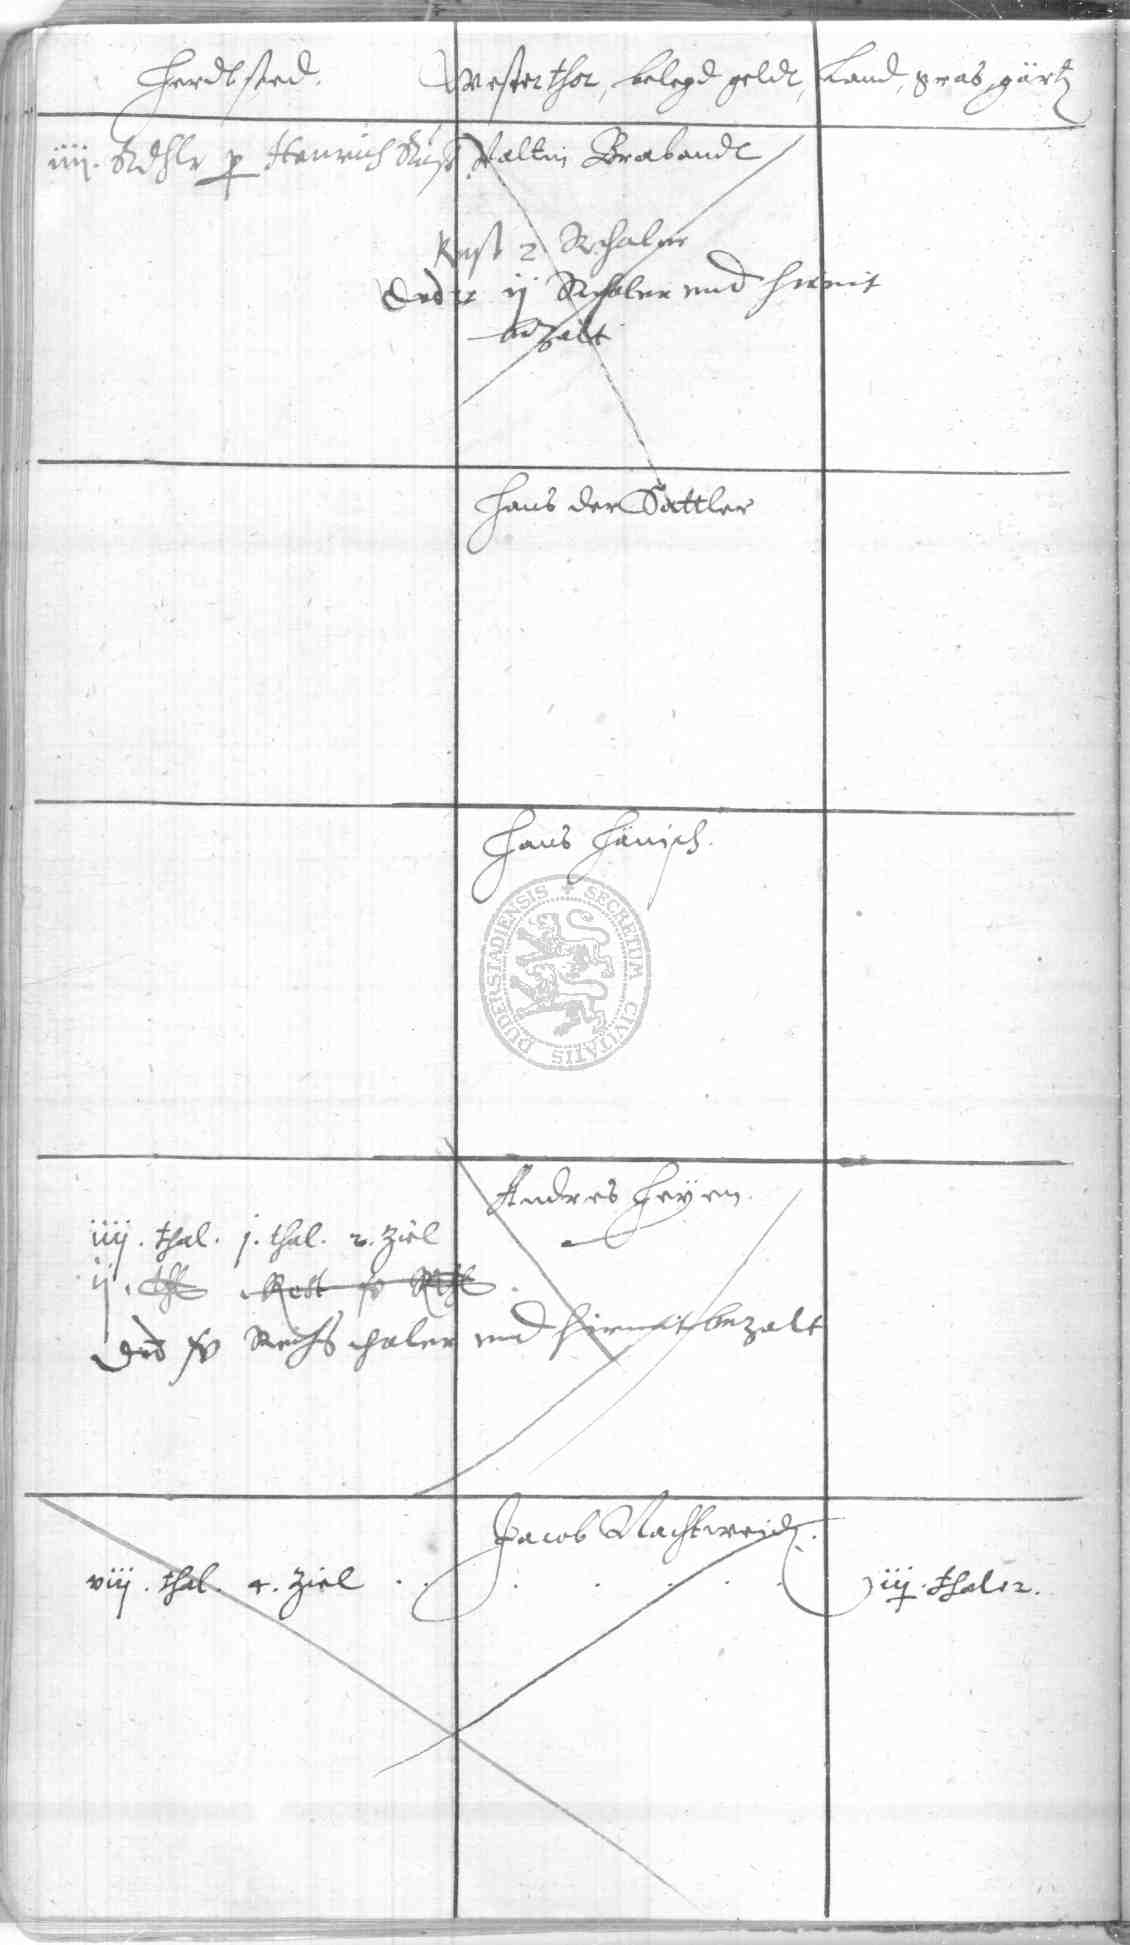 Herdtsted. Westerthor, belegd geldt, Land, gras, gärt
iiij. Rdhlr p Henrich Valtin Brabandt
Rest 2 Rthaler
Dedit ij Rthaler und hirmit
bezalt
Hans der Sattler
Hans Hänisch.
SECRETUM CIVITATIS DUDERSTADIENSIS
Andres Heyen.
iiij. thal. j. thal. 2. Ziel
ij. thl Rest iv Rthl
Dedit iv Reichsthaler und hirmit bezalt
Jacob Nachtweid
viij. thal. 4. Ziel . . . . . . . iiij. thaler.